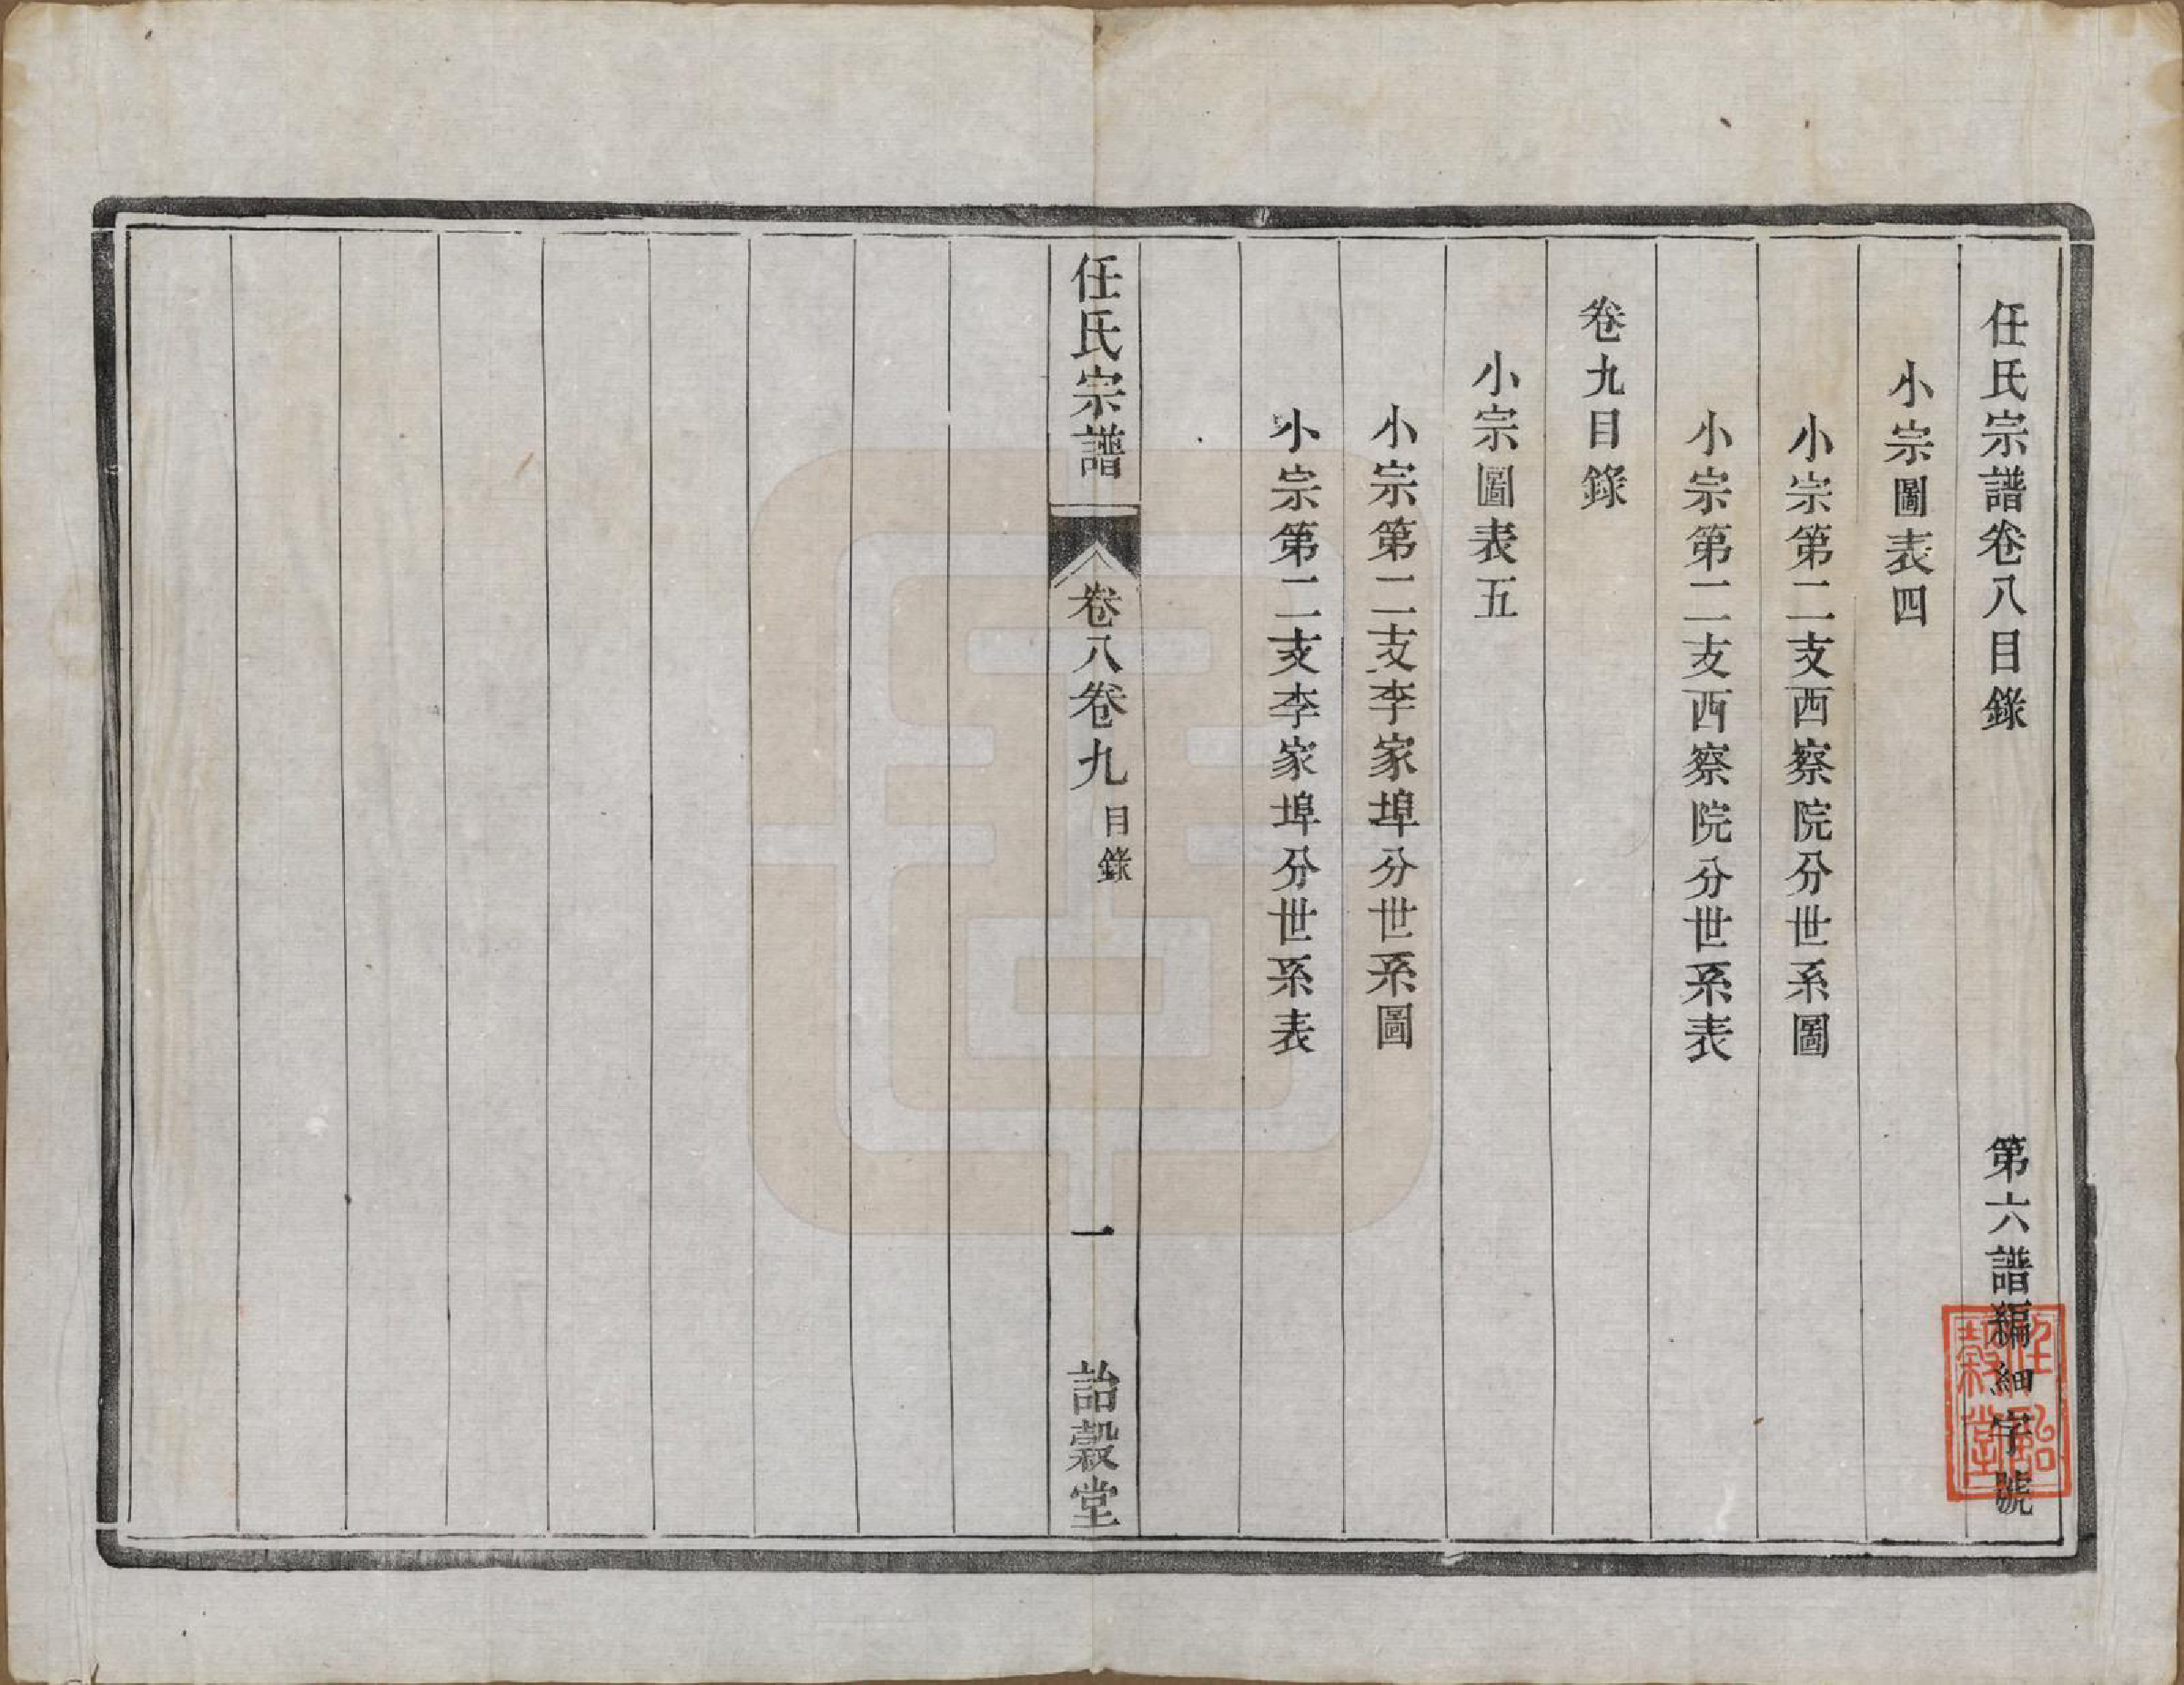 任氏宗譜卷八目錄　第六譜編細字號
小宗圖表四
小宗第二支西察院分世系圖
小宗第二支西察院分世系表
卷九目錄
小宗圖表五
小宗第二支李家埠分世系圖
小宗第二支李家埠分世系表
任氏宗譜　卷八卷九　目錄　一　詒穀堂